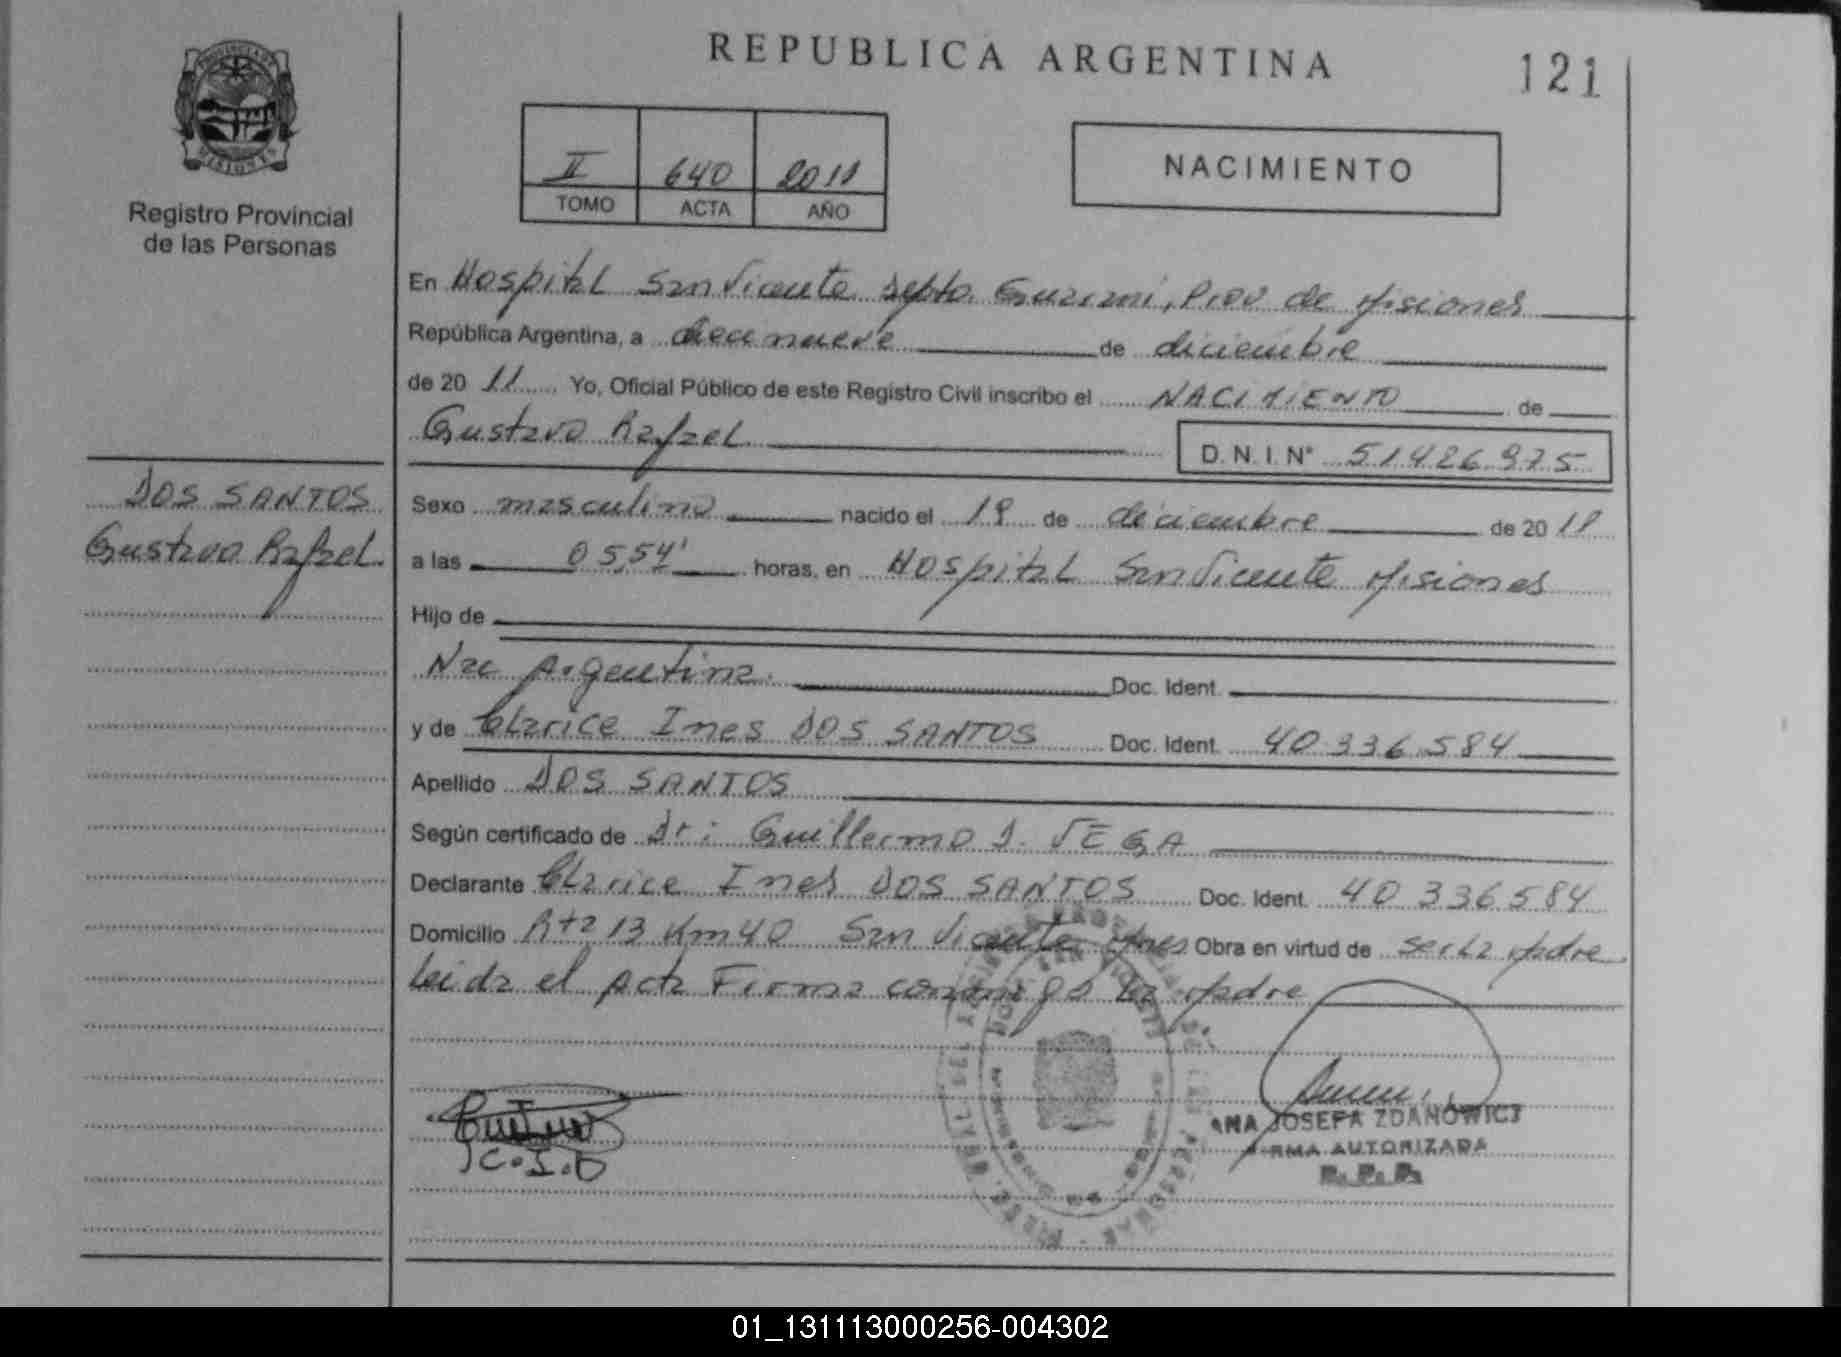 REPUBLICA ARGENTINA
121
PROVINCIA DE
MISIONES
Registro Provincial
de las Personas
II 640 2011
TOMO ACTA AÑO
NACIMIENTO
En Hospital San Vicente Depto. Guarani, Prov de Misiones
República Argentina, a diecinueve de diciembre
de 20 11 Yo, Oficial Público de este Registro Civil inscribo el NACIMIENTO de
Gustavo Rafael D.N.I. Nº 51426975
DOS SANTOS
Gustavo Rafael
Sexo masculino nacido el 19 de diciembre de 20 11
a las 05,54' horas, en Hospital San Vicente Misiones
Hijo de
Nac Argentina. Doc. Ident.
y de Clarice Ines DOS SANTOS Doc. Ident. 40 336 584
Apellido DOS SANTOS
Según certificado de Dr: Guillermo D. VEGA
Declarante Clarice Ines DOS SANTOS Doc. Ident. 40 336584
Domicilio Rta 13 Km 40 San Vicente Mnes Obra en virtud de ser la Madre
Leida el Acta Firma conmigo la Madre
C.I.D
ANA JOSEFA ZDANOWICZ
FIRMA AUTORIZADA
R.P.P.
01_131113000256-004302